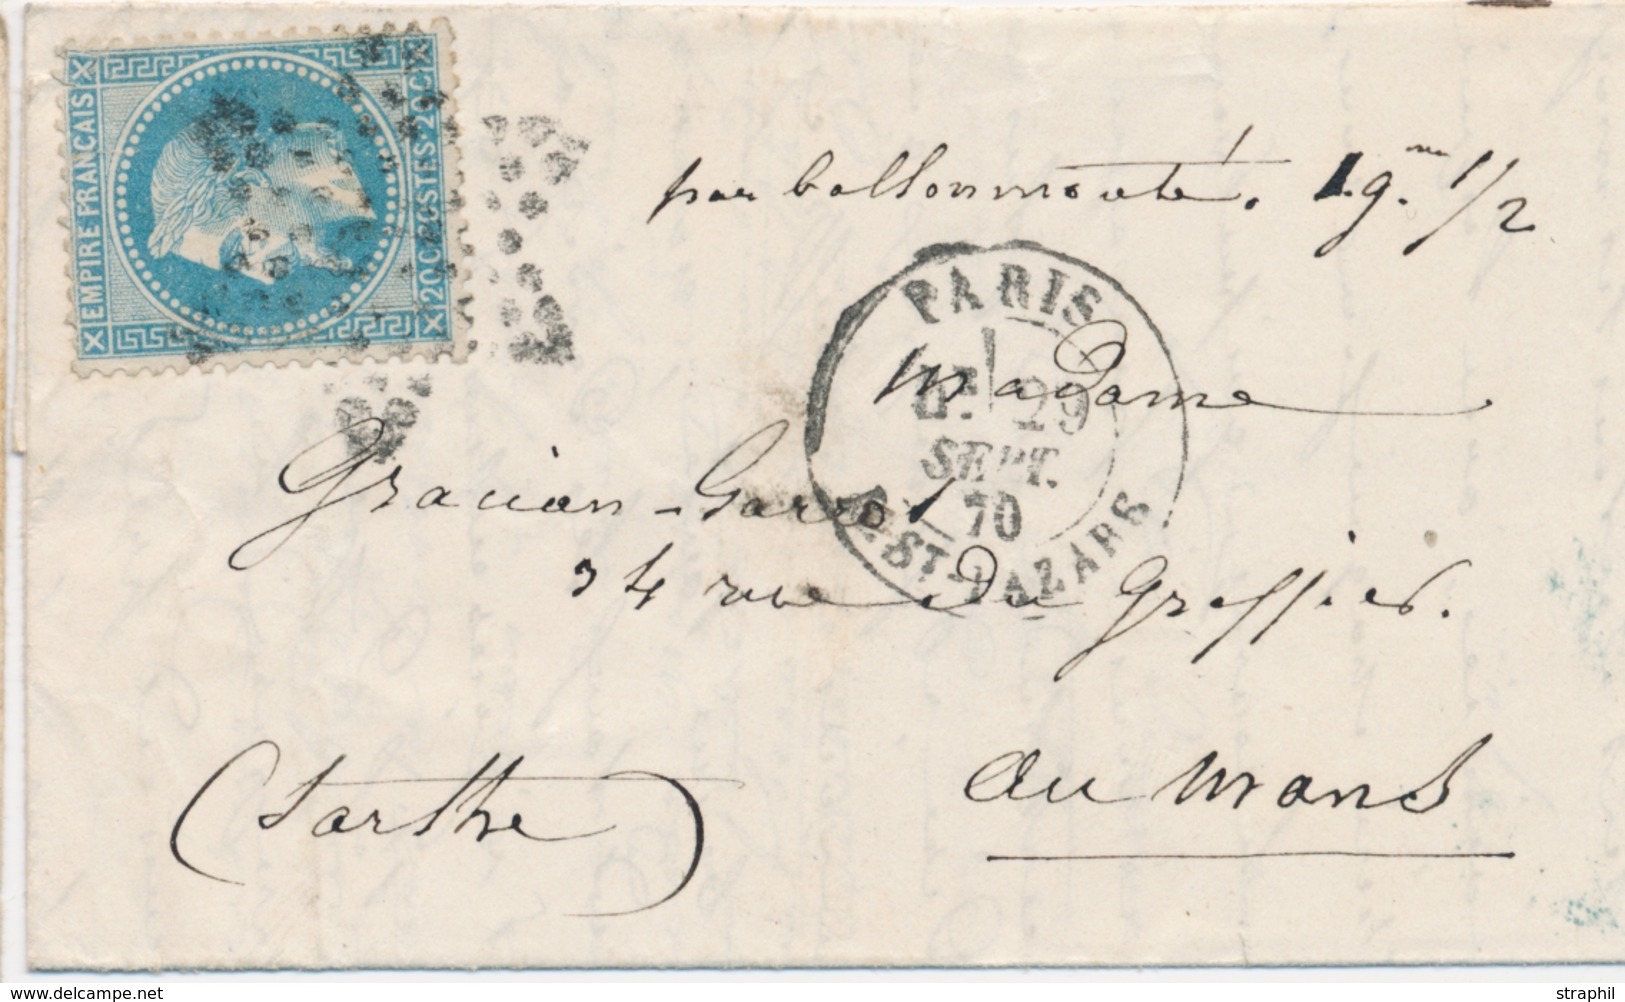 EMPIRE FRANCAIS
20C POSTES 20C
par ballon monté. 1 gme 1/2
PARIS
29
SEPT.
70
R. ST-LAZARE
Madame
Gracian-Garrot
34 rue du Greffier.
au Mans
(Sarthe)
www.delcampe.net
straphil